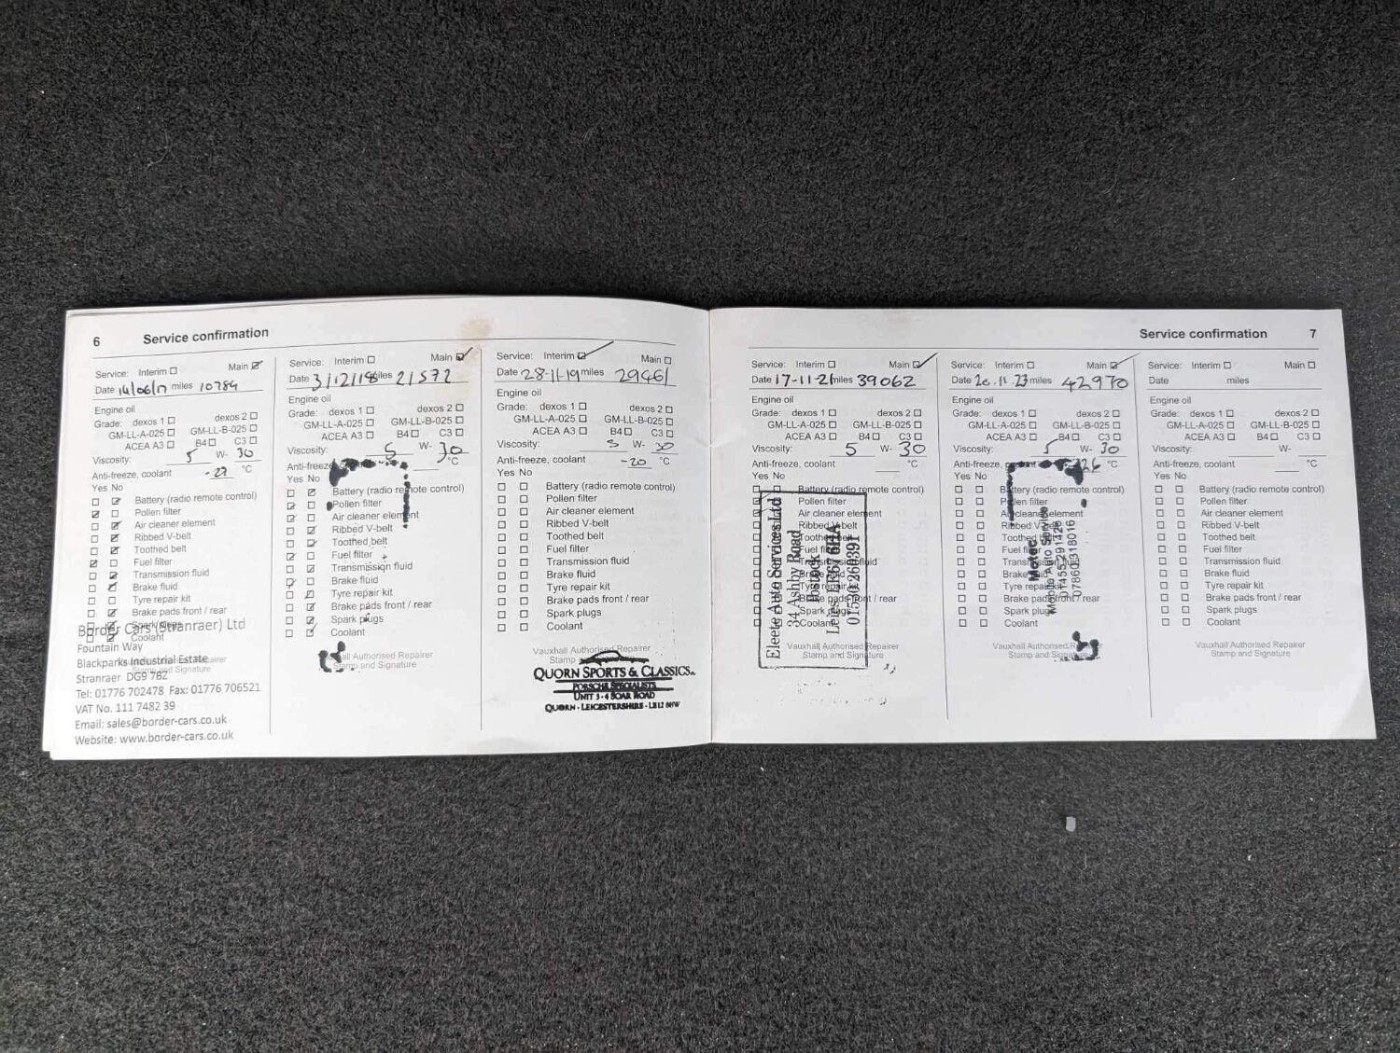 6 Service confirmation
Service: Interim Main
Date 14/06/17 miles 10784
Engine oil
Grade: dexos 1 dexos 2
GM-LL-A-025 GM-LL-B-025
ACEA A3 B4 C3
Viscosity: 5 W- 30
Anti-freeze, coolant -27 °C
Yes No
Battery (radio remote control)
Pollen filter
Air cleaner element
Ribbed V-belt
Toothed belt
Fuel filter
Transmission fluid
Brake fluid
Tyre repair kit
Brake pads front / rear
Spark plugs
Coolant
Border Cars (Stranraer) Ltd
Fountain Way
Blackparks Industrial Estate
Stranraer DG9 7BZ
Tel: 01776 702478 Fax: 01776 706521
VAT No. 111 7482 39
Email: sales@border-cars.co.uk
Website: www.border-cars.co.uk
Service: Interim Main
Date 3/12/18 miles 21572
Engine oil
Grade: dexos 1 dexos 2
GM-LL-A-025 GM-LL-B-025
ACEA A3 B4 C3
Viscosity: 5 W- 30
Anti-freeze °C
Yes No
Battery (radio remote control)
Pollen filter
Air cleaner element
Ribbed V-belt
Toothed belt
Fuel filter
Transmission fluid
Brake fluid
Tyre repair kit
Brake pads front / rear
Spark plugs
Coolant
Authorised Repairer
Stamp and Signature
Service: Interim Main
Date 28-11-19 miles 29461
Engine oil
Grade: dexos 1 dexos 2
GM-LL-A-025 GM-LL-B-025
ACEA A3 B4 C3
Viscosity: 5 W- 30
Anti-freeze, coolant -20 °C
Yes No
Battery (radio remote control)
Pollen filter
Air cleaner element
Ribbed V-belt
Toothed belt
Fuel filter
Transmission fluid
Brake fluid
Tyre repair kit
Brake pads front / rear
Spark plugs
Coolant
Vauxhall Authorised Repairer
Stamp
QUORN SPORTS & CLASSICS
PORSCHE SPECIALISTS
UNIT 3-4 SOAR ROAD
QUORN - LEICESTERSHIRE - LE12 8BW
Service confirmation 7
Service: Interim Main
Date 17-11-21 miles 39062
Engine oil
Grade: dexos 1 dexos 2
GM-LL-A-025 GM-LL-B-025
ACEA A3 B4 C3
Viscosity: 5 W- 30
Anti-freeze, coolant °C
Yes No
Battery (radio remote control)
Pollen filter
Air cleaner element
Ribbed V-belt
Toothed belt
Fuel filter
Transmission fluid
Brake fluid
Tyre repair kit
Brake pads front / rear
Spark plugs
Coolant
Vauxhall Authorised Repairer
Stamp and Signature
Eleets Auto Services Ltd
34 Ashby Road
Ibstock
Leics LE67 6HA
01530 260391
Service: Interim Main
Date 20.11.23 miles 42970
Engine oil
Grade: dexos 1 dexos 2
GM-LL-A-025 GM-LL-B-025
ACEA A3 B4 C3
Viscosity: 5 W- 30
Anti-freeze, -26 °C
Yes No
Battery (radio remote control)
Pollen filter
Air cleaner element
Ribbed V-belt
Toothed belt
Fuel filter
Transmission fluid
Brake fluid
Tyre repair kit
Brake pads front / rear
Spark plugs
Coolant
Vauxhall Authorised
Stamp and Signature
Motec
Mobile Auto Service
01455 291426
07860 318016
Service: Interim Main
Date miles
Engine oil
Grade: dexos 1 dexos 2
GM-LL-A-025 GM-LL-B-025
ACEA A3 B4 C3
Viscosity: W-
Anti-freeze, coolant °C
Yes No
Battery (radio remote control)
Pollen filter
Air cleaner element
Ribbed V-belt
Toothed belt
Fuel filter
Transmission fluid
Brake fluid
Tyre repair kit
Brake pads front / rear
Spark plugs
Coolant
Vauxhall Authorised Repairer
Stamp and Signature